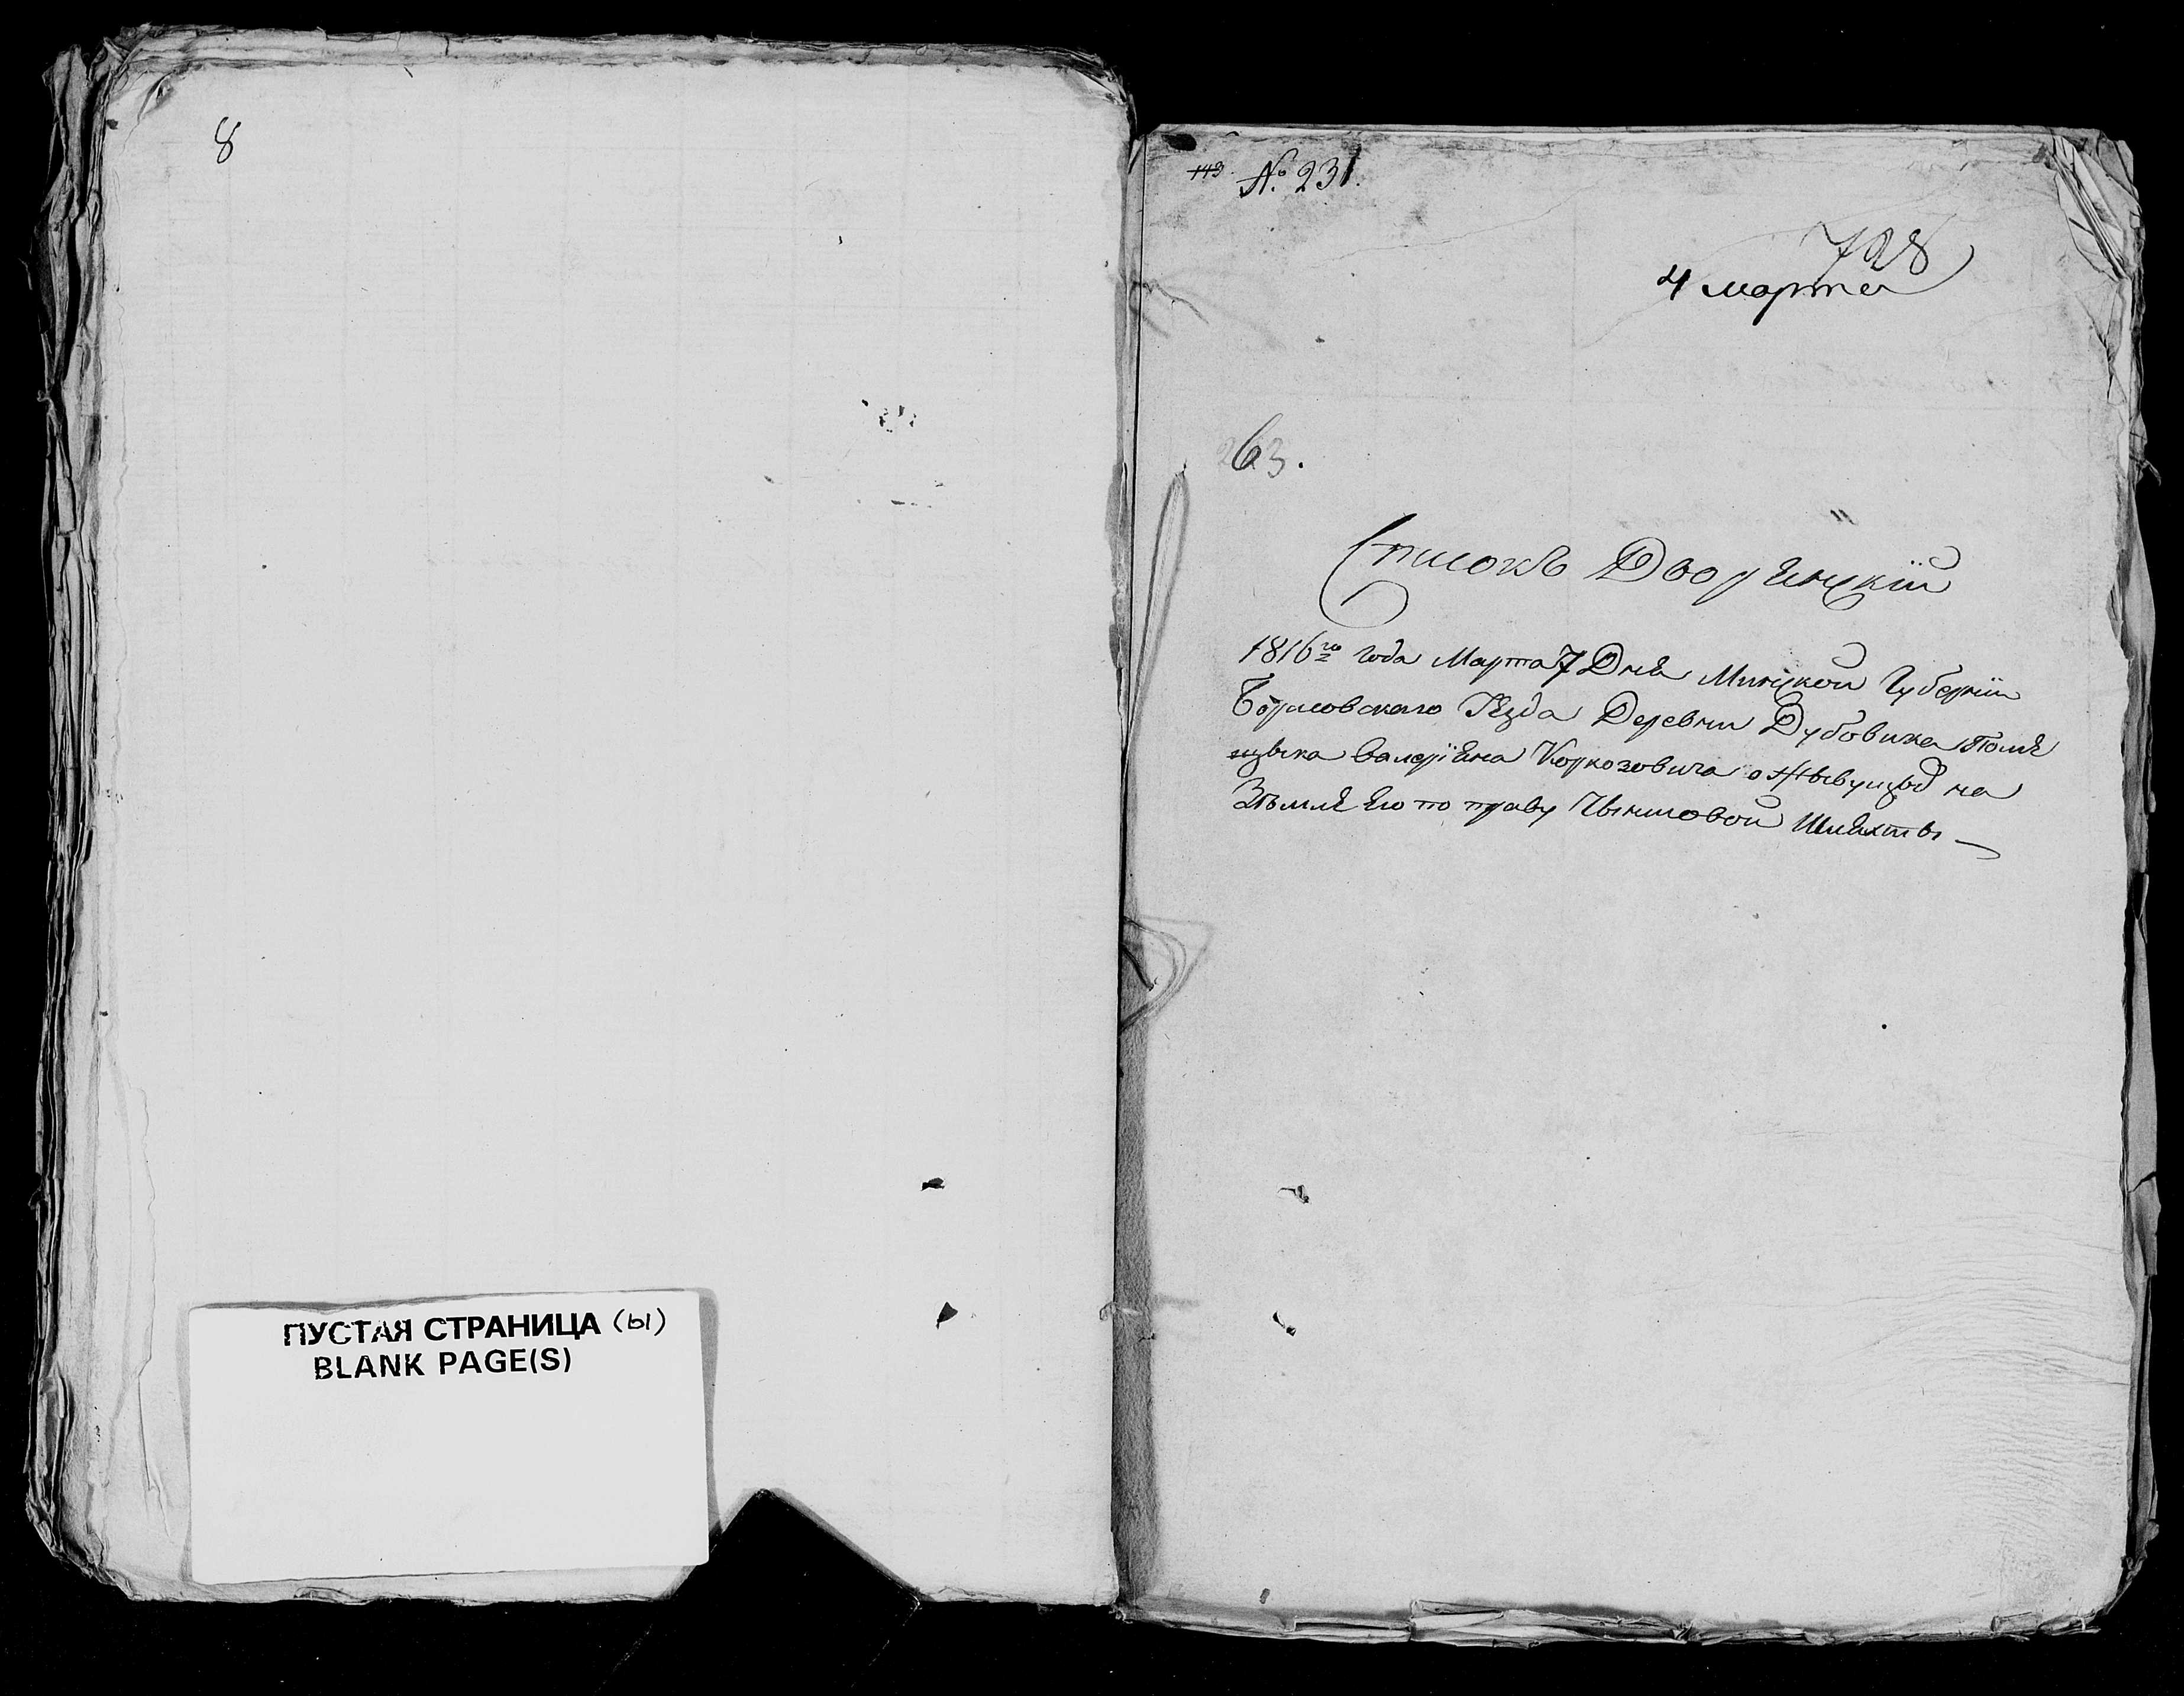 8
ПУСТАЯ СТРАНИЦА (ы)
BLANK PAGE(S)
143. №. 231.
728
4 марта
263.
Списокъ Дворянскій
1816го года Марта 7 Дня Минской Губерніи
Борисовского Уезда Деревни Дубовика Поме
щыка Валеріяна Коркозовича о Жывущыд на
Зѣмле Его по праву Чыншовой Шляхты